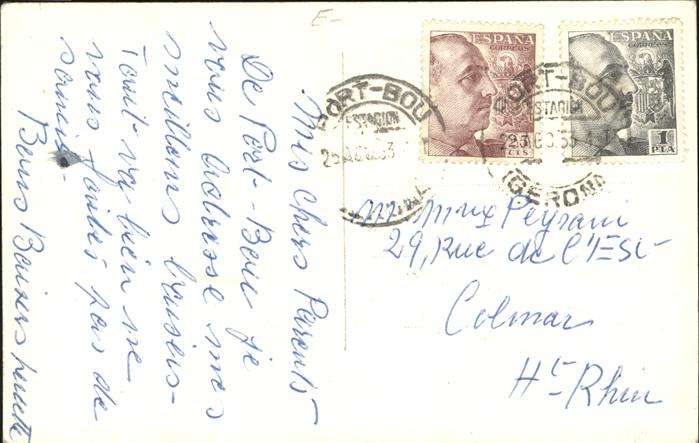 E-
Mes chers Parents
De Port-Bou je
vous adresse mes
meilleurs baisers
Tout va bien ne
vous faites pas de
soucis.
Bons Baisers
ESPAÑA
CORREOS
25
CTS
ESPAÑA
CORREOS
1
PTA
PORT-BOU
ESTACION
PORT-BOU
ESTACION
(GERONA)
M. Mme Peyrani
29, Rue de l'Est
Colmar
Ht-Rhin